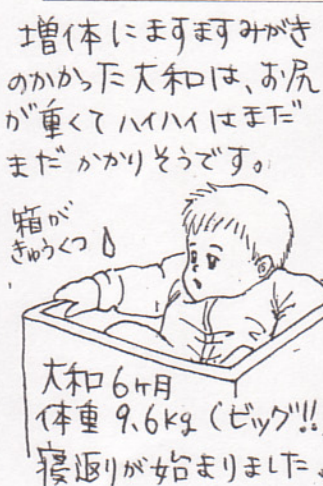 増体にますますみがき
のかかった大和は、お尻
が重くてハイハイはまだ
まだかかりそうです。
箱が
きゅうくつ
大和6ヶ月
体重 9.6kg (ビッグ!!
寝返りが始まりました。